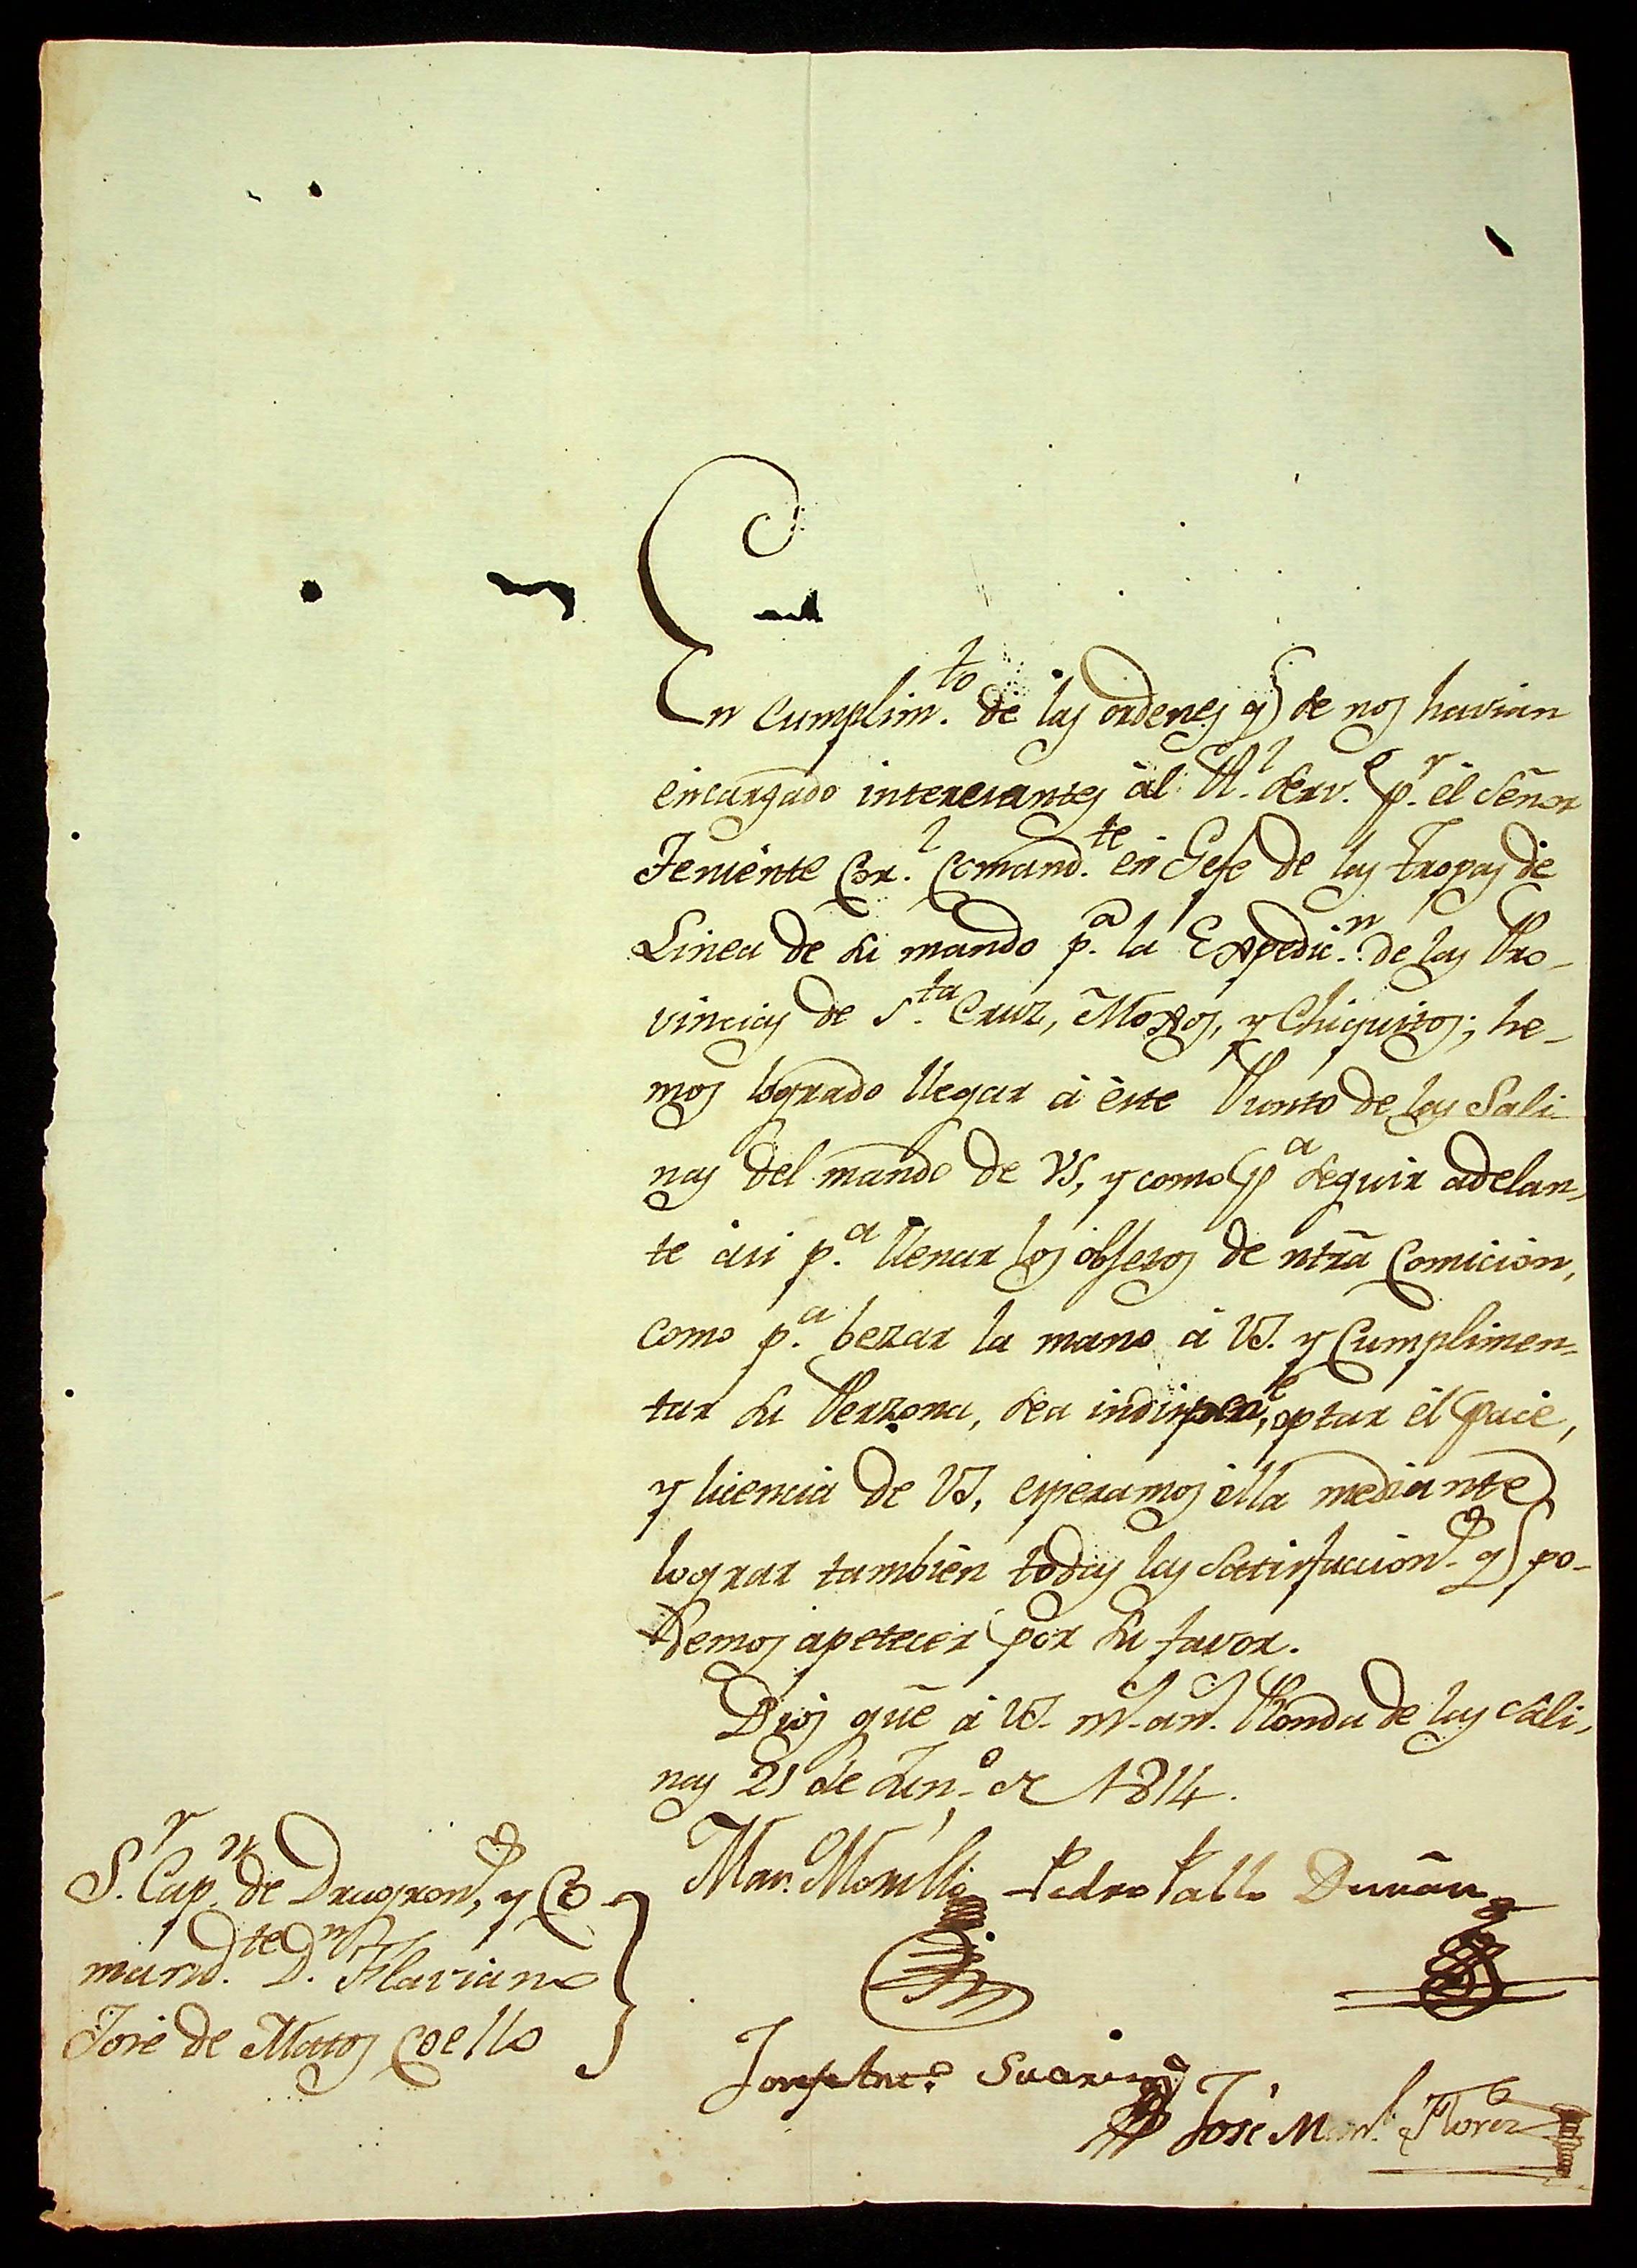 En cumplim.to de las ordenes q.e se nos havian
encargado interesantes àl R.l serv.o p.r èl Señor
Teniente Cor.l Comand.te en Gefe de las Tropas de
Linea de su mando p.a la Expedic.n de las Pro-
vincias de S.ta Cruz, Moxos, y Chiquitos; he-
mos logrado llegar à èste Punto de las Sali-
nas del mando de VS, y como p.a seguir adelan-
te àsi p.a llenar los objetos de ntrã Comicion,
como p.a bezar la mano à VS. y Cumplimen-
tar su Perzona, sea indispen.e, optar èl pace,
y licencia de VS, esperamos illa mediante
lograr tambien todas las Satisfaccion.s q.e po-
demos apetecer por su favor.
Dios gũe à VS. m.s an.s Ronda de las Sali-
nas 21 de Jun.o de 1814.
Man.l Morillo Pedro Pallo Durán
S.r Cap.n de Dragon.s, y Co-
mand.te D.n Flaviano
José de Matos Coello
Josef Ant.o Suarez
José Man.l Florez